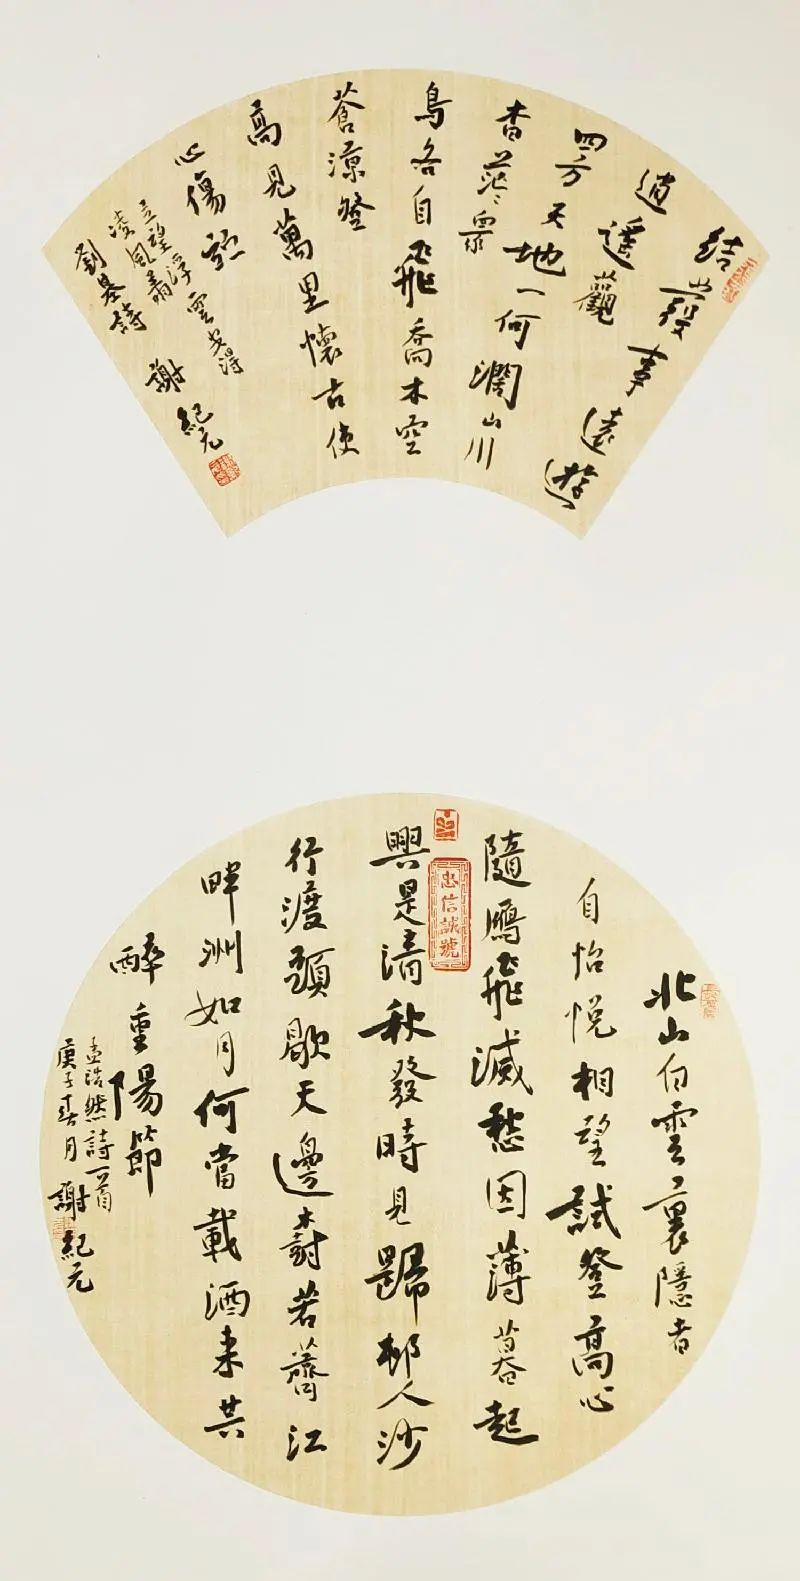 結發事遠遊
逍遙觀
四方天地一何闊山川
杳茫〻眾
鳥各自飛喬木空
蒼涼登
高見萬里懷古使
心傷佇
立望浮雲安得
凌風翔
劉基詩
謝紀元
北山白雲裏隱者
自怡悅相望試登高心
隨鴈飛滅愁因薄暮起
忠信誠號
興是清秋發時見歸邨人沙
行渡頭歇天邊樹若薺江
畔洲如月何當載酒來共
醉重陽節
孟浩然詩一首
庚子春月謝紀元